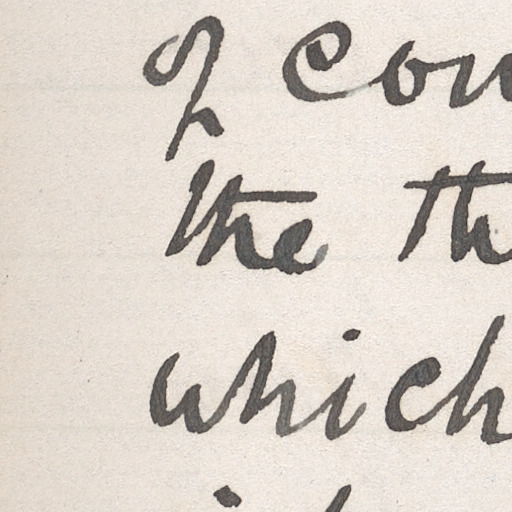 of con
the th
which